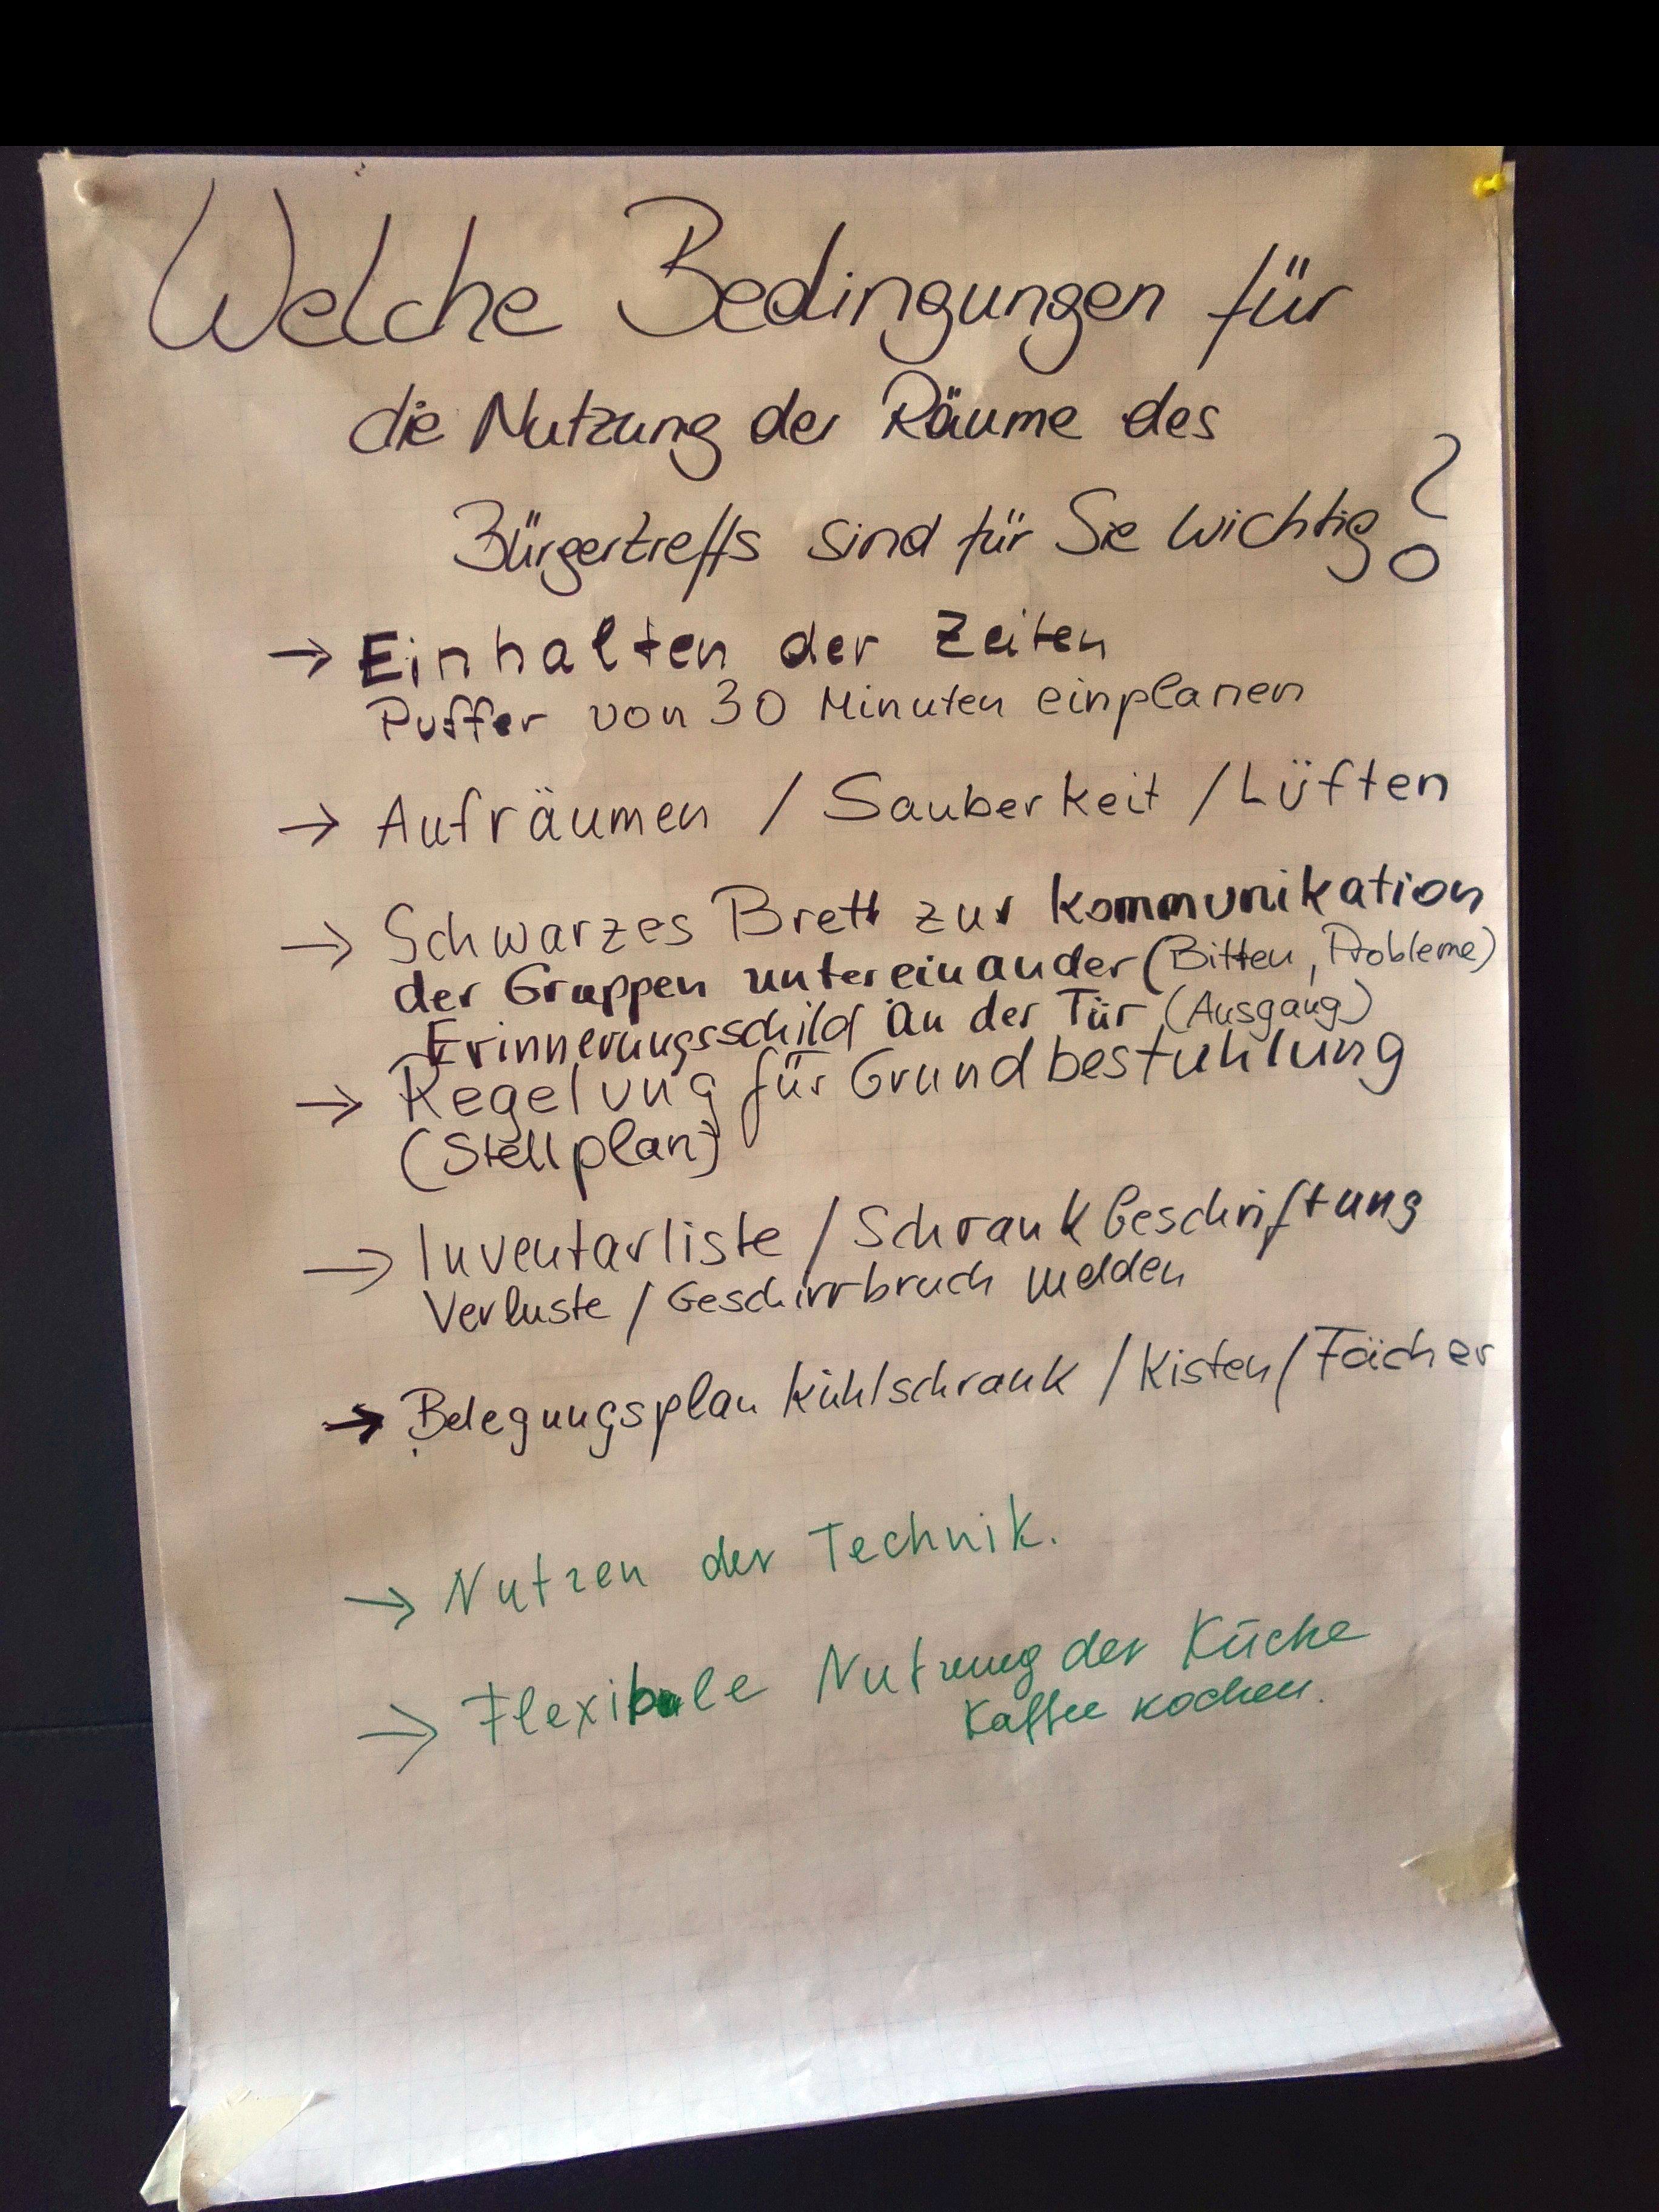 Welche Bedingungen für
die Nutzung der Räume des
Bürgertreffs sind für Sie wichtig?
→ Einhalten der Zeiten
Puffer von 30 Minuten einplanen
→ Aufräumen / Sauberkeit / Lüften
→ Schwarzes Brett zur Kommunikation
der Gruppen untereinander (Bitten, Probleme)
Erinnerungsschild an der Tür (Ausgang)
→ Regelung für Grundbestuhlung
(Stellplan)
→ Inventarliste / Schrankbeschriftung
Verluste / Geschirrbruch melden
→ Belegungsplan Kühlschrank / Kisten / Fächer
→ Nutzen der Technik.
→ Flexible Nutzung der Küche
Kaffee kochen.